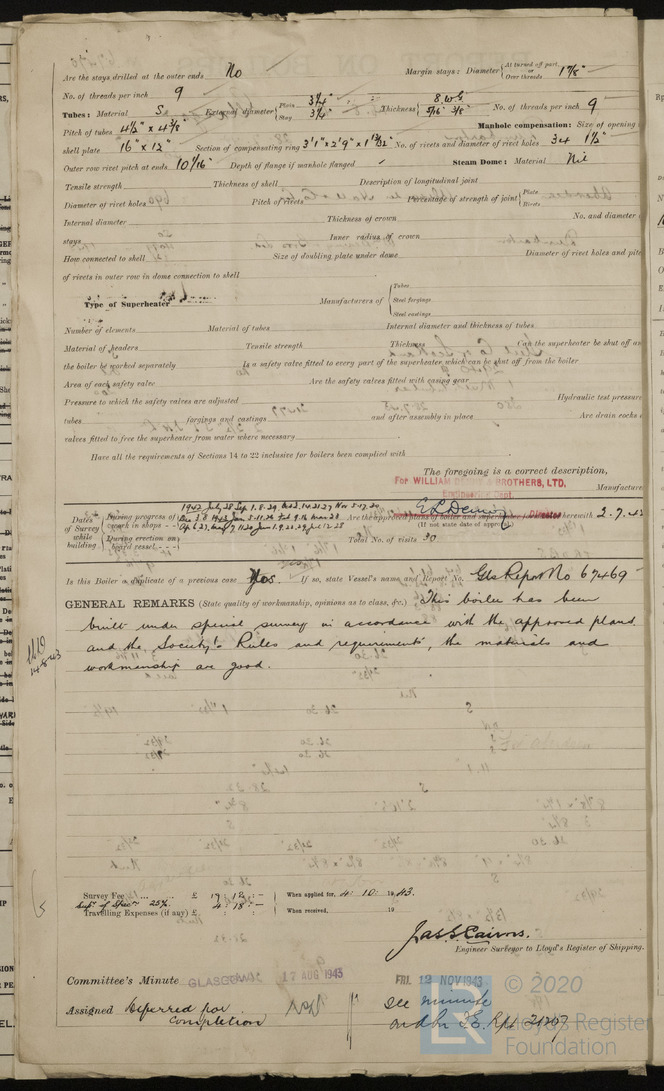 Are the stays drilled at the outer ends No Margin stays: Diameter { At turned off part, or Over threads 1 7/8"
No. of threads per inch 9
Tubes: Material S External diameter { Plain 3 1/4" Stay 3 1/4" Thickness { 8 WG 5/16" 3/8" No. of threads per inch 9
Pitch of tubes 4 1/2" x 4 3/8" Manhole compensation: Size of opening
shell plate 16" x 12" Section of compensating ring 3'1" x 2'9" x 1 13/32" No. of rivets and diameter of rivet holes 34 1 1/2"
Outer row rivet pitch at ends 10 1/16" Depth of flange if manhole flanged Steam Dome: Material Nil
Tensile strength Thickness of shell Description of longitudinal joint
Diameter of rivet holes Pitch of rivets Percentage of strength of joint { Plate Rivets
Internal diameter Thickness of crown No. and diameter
stays Inner radius of crown
How connected to shell Size of doubling plate under dome Diameter of rivet holes and pitch
of rivets in outer row in dome connection to shell
Type of Superheater Manufacturers of { Tubes Steel forgings Steel castings
Number of elements Material of tubes Internal diameter and thickness of tubes
Material of headers Tensile strength Thickness Can the superheater be shut off and
the boiler be worked separately Is a safety valve fitted to every part of the superheater which can be shut off from the boiler
Area of each safety valve Are the safety valves fitted with easing gear
Pressure to which the safety valves are adjusted Hydraulic test pressure
tubes forgings and castings and after assembly in place Are drain cocks
valves fitted to free the superheater from water where necessary
Have all the requirements of Sections 14 to 22 inclusive for boilers been complied with
The foregoing is a correct description,
For WILLIAM DENNY & BROTHERS, LTD. Manufacturer
Engineering Dept.
E L Denny Director
Dates of Survey while building { During progress of work in shops - - 1942 July 28 Sep 1. 8. 29.
During erection on board vessel - - -
Are the approved plans of boiler and superheater forwarded herewith 2.7.43
(If not state date of approval.)
Total No. of visits 30
Is this Boiler a duplicate of a previous case Yes. If so, state Vessel's name and Report No. Gls Report No 67469
GENERAL REMARKS (State quality of workmanship, opinions as to class, &c.) This boiler has been
built under special survey in accordance with the approved plans
and the Society's Rules and requirements, the materials and
workmanship are good.
14-8-43
Survey Fee ... ... £ 19 : 12 : - When applied for, 4. 10. 1943.
25% 4 : 18 : -
Travelling Expenses (if any) £ : : When received, 19
Jas S Cairns.
Engineer Surveyor to Lloyd's Register of Shipping.
Committee's Minute GLASGOW 17 AUG 1943 FRI. 12 NOV 1943
Assigned Deferred for completion
see minute
on Rpt 21207
© 2020
LR
Lloyd's Register
Foundation